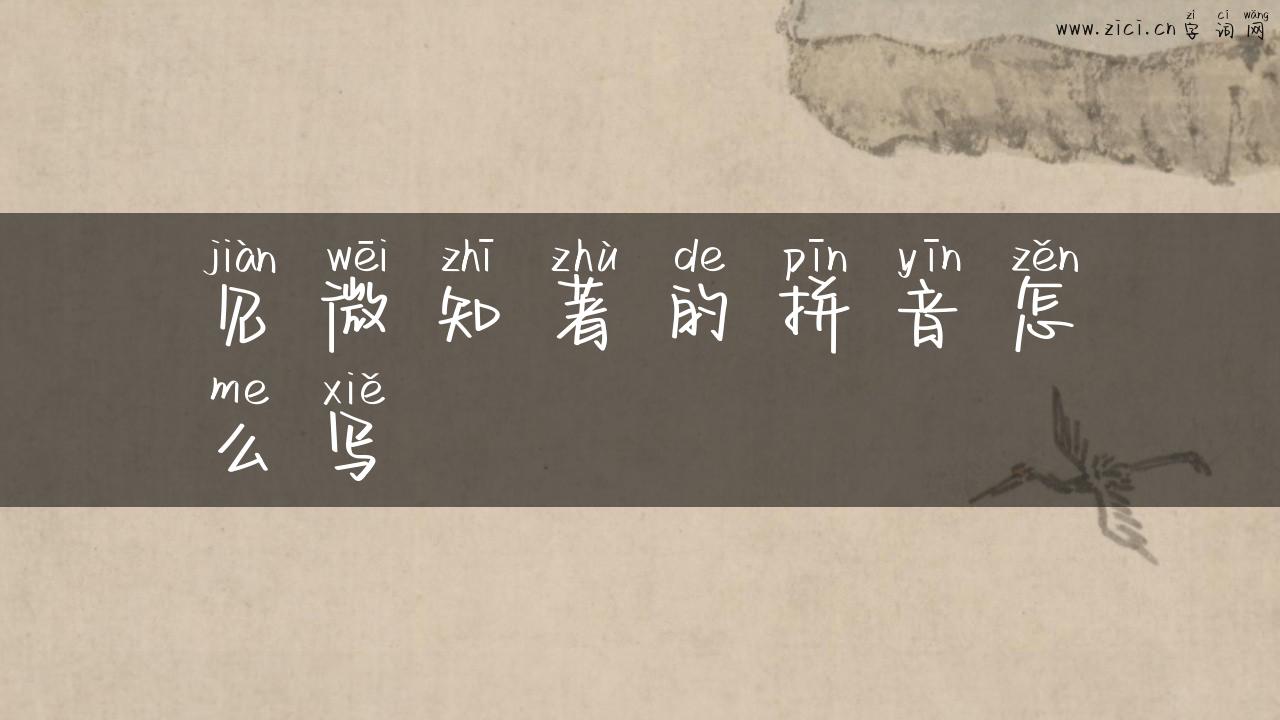 zì cí wǎng
www.zici.cn 字 词 网
jiàn wēi zhī zhù de pīn yīn zěn
见 微 知 著 的 拼 音 怎
me xiě
么 写